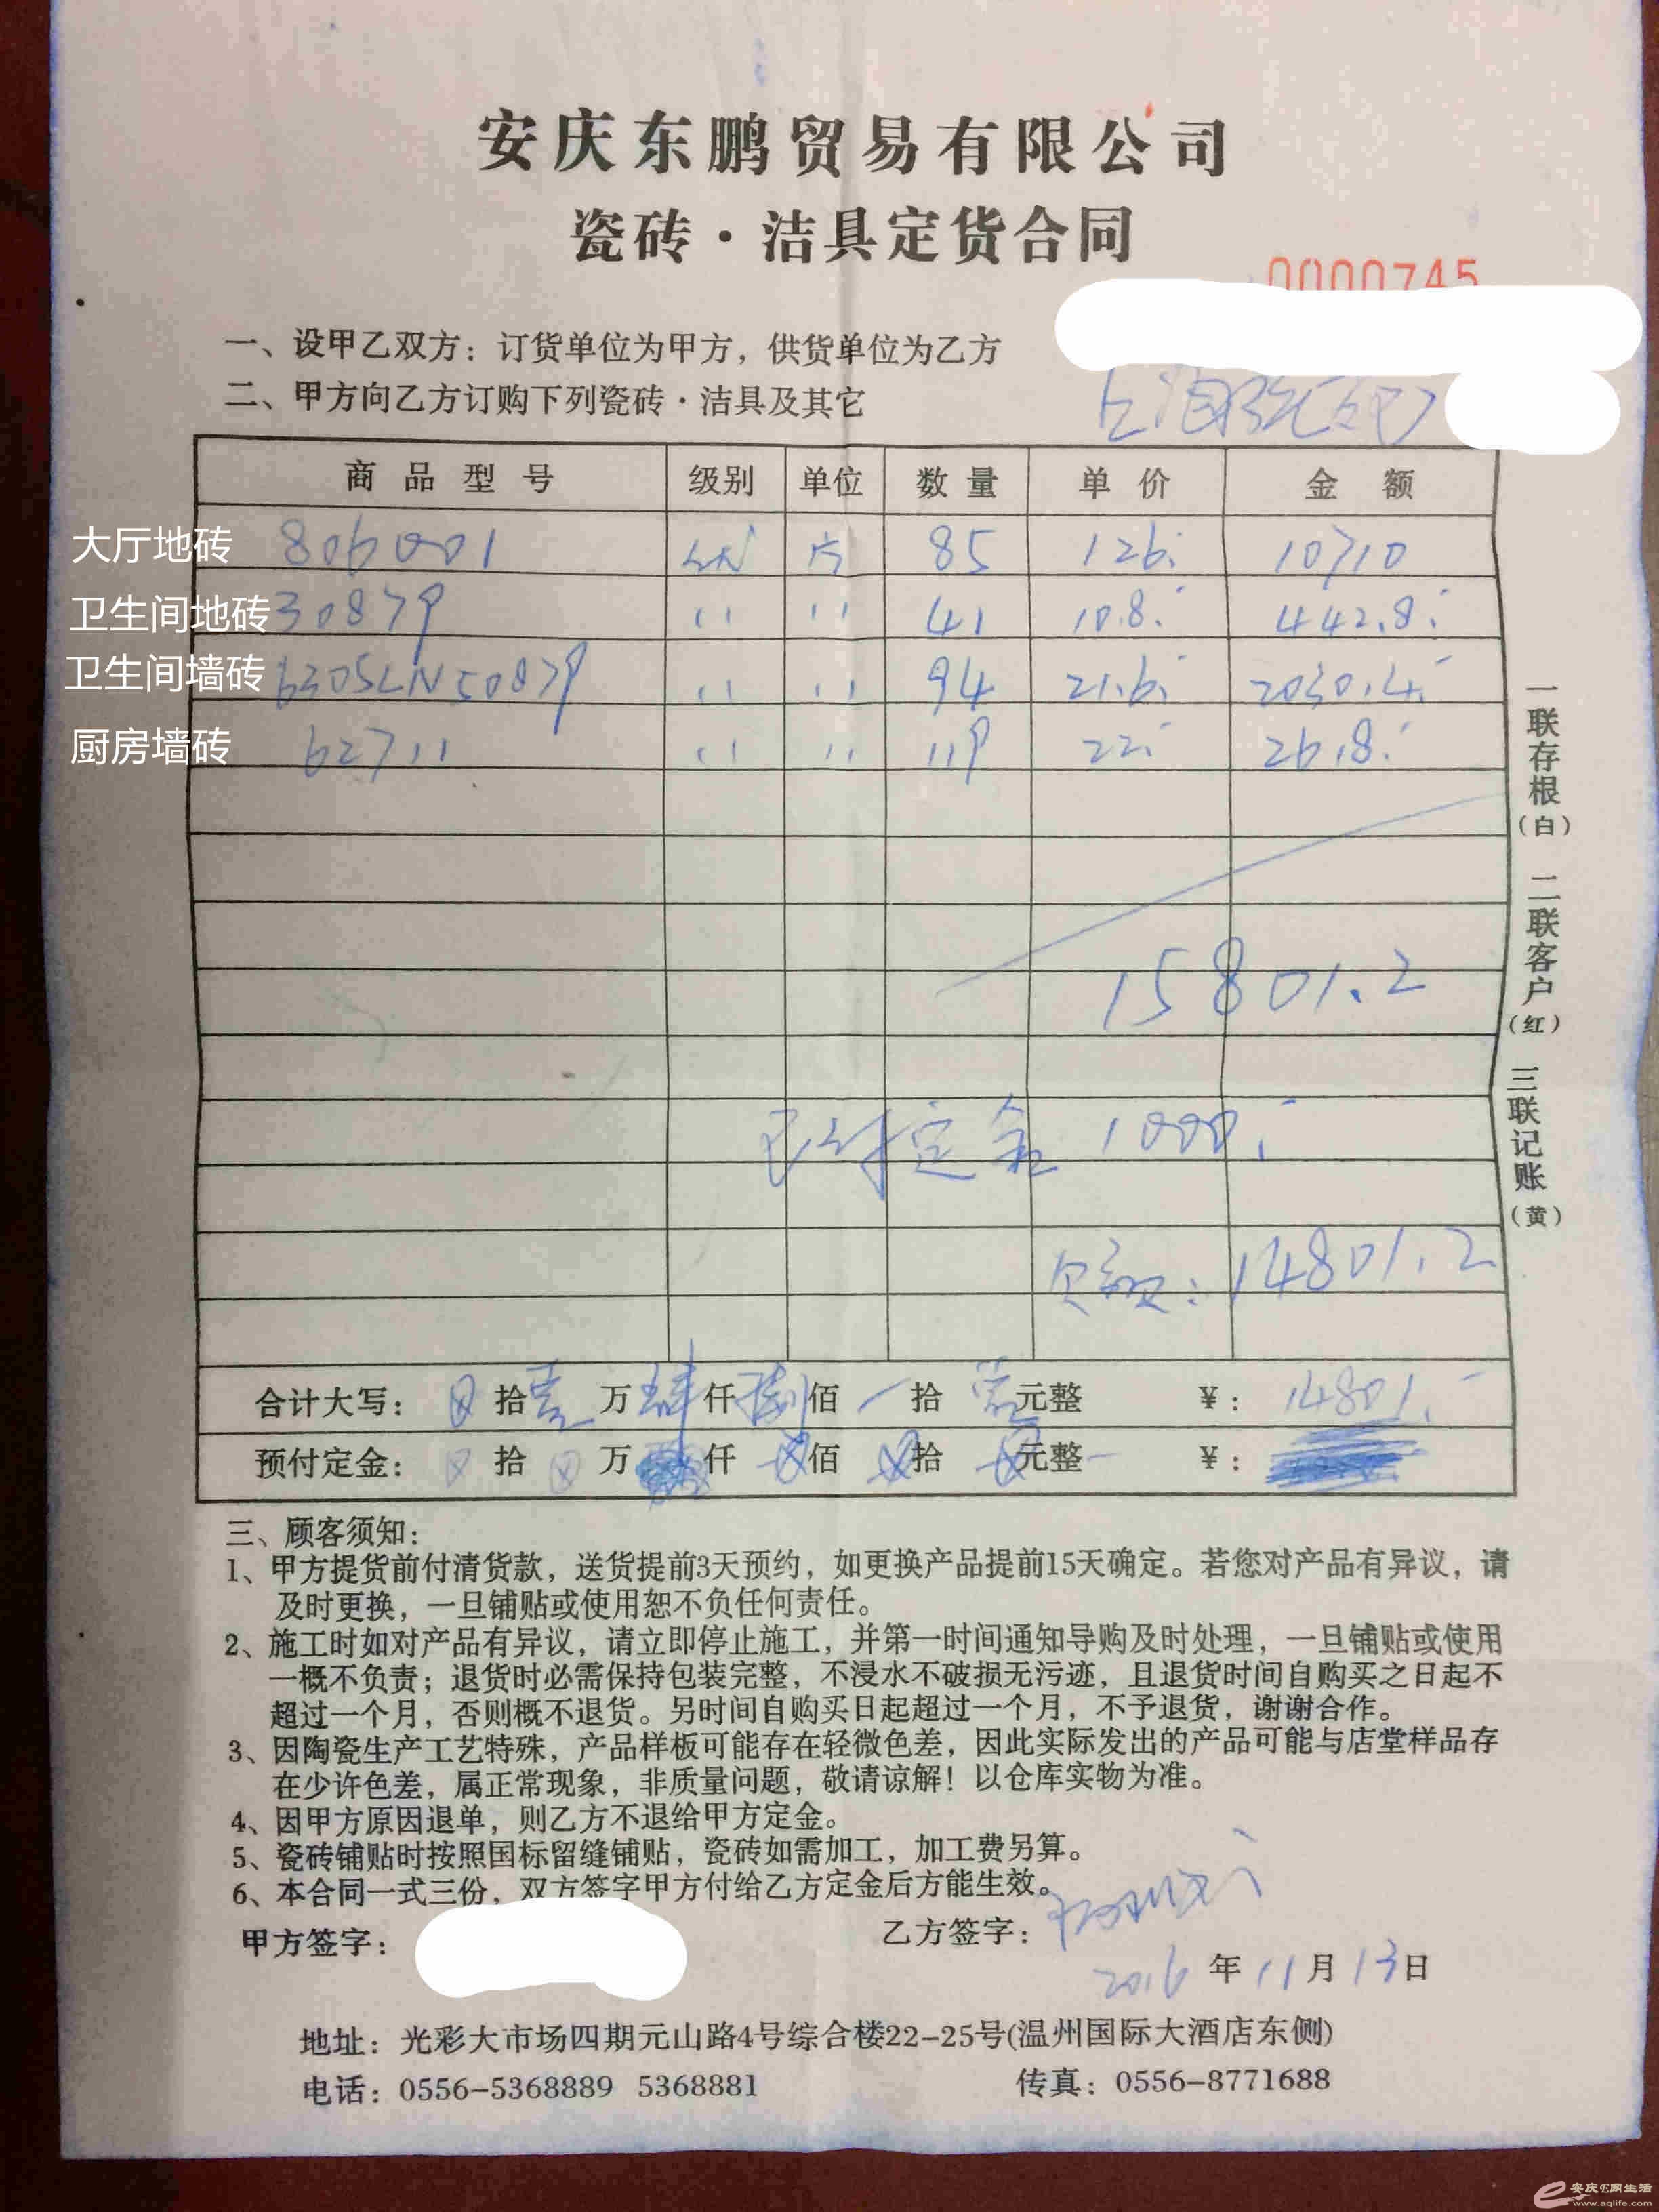 安庆东鹏贸易有限公司
瓷砖·洁具定货合同
0000745
一、设甲乙双方：订货单位为甲方，供货单位为乙方
二、甲方向乙方订购下列瓷砖·洁具及其它
商品型号 级别 单位 数量 单价 金额
大厅地砖 806001 片 85 126. 10710
卫生间地砖 30879 11 11 41 10.8. 442.8.
卫生间墙砖 6305LN50879 11 11 94 21.6. 2030.4.
厨房墙砖 62711 11 11 119 22. 2618.
15801.2
已付定金 1000.
欠款：14801.2
合计大写： 拾壹万肆仟捌佰 拾 元整 ￥：14801.
预付定金： 拾 万 仟 佰 拾 元整 ￥：
一联存根（白） 二联客户（红） 三联记账（黄）
三、顾客须知：
1、甲方提货前付清货款，送货提前3天预约，如更换产品提前15天确定。若您对产品有异议，请
及时更换，一旦铺贴或使用恕不负任何责任。
2、施工时如对产品有异议，请立即停止施工，并第一时间通知导购及时处理，一旦铺贴或使用
一概不负责；退货时必需保持包装完整，不浸水不破损无污迹，且退货时间自购买之日起不
超过一个月，否则概不退货。另时间自购买日起超过一个月，不予退货，谢谢合作。
3、因陶瓷生产工艺特殊，产品样板可能存在轻微色差，因此实际发出的产品可能与店堂样品存
在少许色差，属正常现象，非质量问题，敬请谅解！以仓库实物为准。
4、因甲方原因退单，则乙方不退给甲方定金。
5、瓷砖铺贴时按照国标留缝铺贴，瓷砖如需加工，加工费另算。
6、本合同一式三份，双方签字甲方付给乙方定金后方能生效。
甲方签字： 乙方签字：
2016年11月13日
地址：光彩大市场四期元山路4号综合楼22-25号(温州国际大酒店东侧)
电话：0556-5368889 5368881 传真：0556-8771688
安庆E网生活
www.aqlife.com